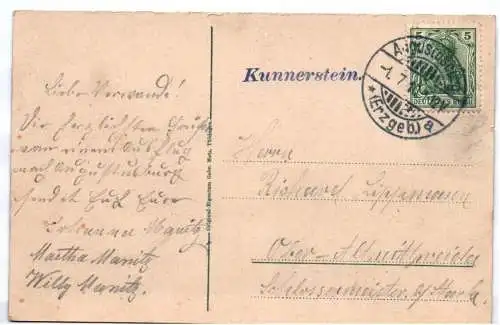 Liebe Verwandte!
Die herzlichsten Grüße
von einem Ausflug
nach Augustusburg
sendet Euch Eure
Manitz
Martha Manitz
Willy Manitz.
Kunnerstein.
5 5
DEUTSCHES REICH
Augustusburg
(Erzgeb.) a
Herrn
Richard Lippmann
Ober-
Schlossermeister